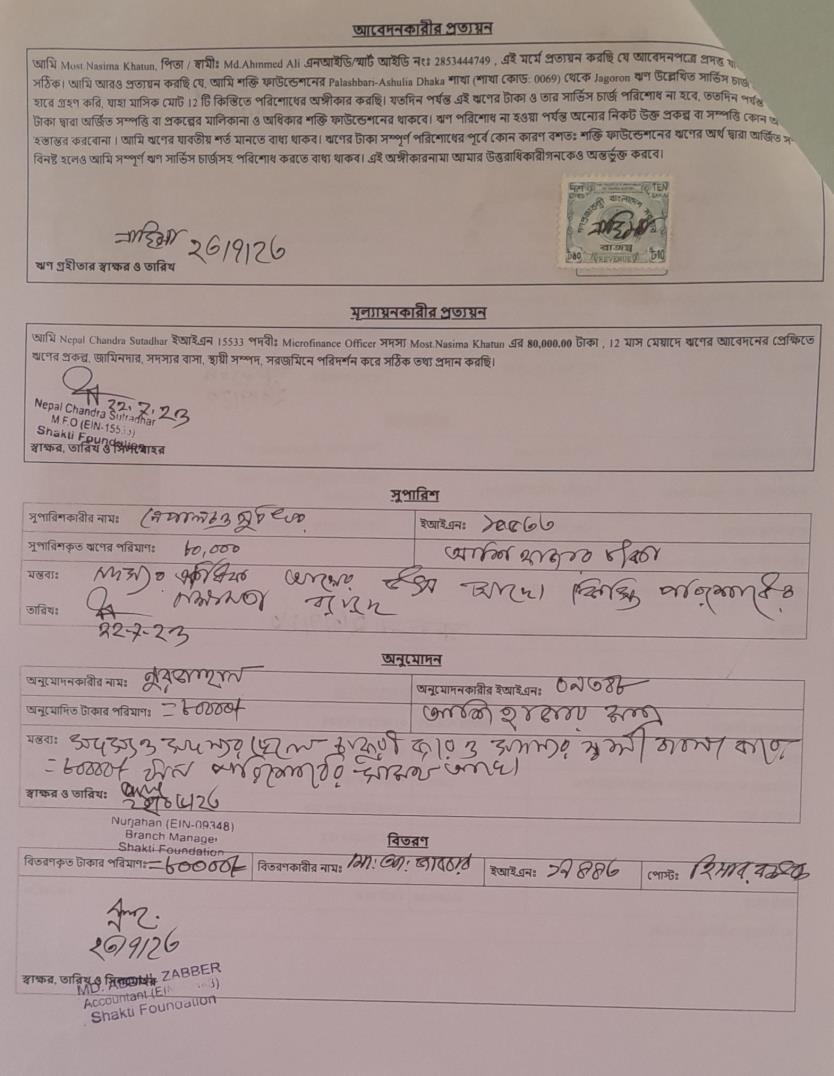 আবেদনকারীর প্রত্যয়ন
আমি Most.Nasima Khatun, পিতা / স্বামীঃ Md.Ahmmed Ali এনআইডি/স্মার্ট আইডি নংঃ 2853444749 , এই মর্মে প্রত্যয়ন করছি যে আবেদনপত্রে প্রদত্ত
সঠিক। আমি আরও প্রত্যয়ন করছি যে, আমি শক্তি ফাউন্ডেশনের Palashbari-Ashulia Dhaka শাখা (শাখা কোড: 0069) থেকে Jagoron ঋণ উল্লেখিত সার্ভিস চার্জ
হারে গ্রহণ করি, যাহা মাসিক মোট 12 টি কিস্তিতে পরিশোধের অঙ্গীকার করছি। যতদিন পর্যন্ত এই ঋণের টাকা ও তার সার্ভিস চার্জ পরিশোধ না হবে, ততদিন পর্যন্ত
টাকা দ্বারা অর্জিত সম্পত্তি বা প্রকল্পের মালিকানা ও অধিকার শক্তি ফাউন্ডেশনের থাকবে। ঋণ পরিশোধ না হওয়া পর্যন্ত অন্যের নিকট উক্ত প্রকল্প বা সম্পত্তি কোন
হস্তান্তর করবোনা । আমি ঋণের যাবতীয় শর্ত মানতে বাধ্য থাকব। ঋণের টাকা সম্পূর্ণ পরিশোধের পূর্বে কোন কারণ বশতঃ শক্তি ফাউন্ডেশনের ঋণের অর্থ দ্বারা অর্জিত
বিনষ্ট হলেও আমি সম্পূর্ণ ঋণ সার্ভিস চার্জসহ পরিশোধ করতে বাধ্য থাকব। এই অঙ্গীকারনামা আমার উত্তরাধিকারীগনকেও অন্তর্ভুক্ত করবে।
TEN
নাছিমা
নাছিমা ২৩/৭/২৩
REVENUE
ঋণ গ্রহীতার স্বাক্ষর ও তারিখ
মূল্যায়নকারীর প্রত্যয়ন
আমি Nepal Chandra Sutadhar ইআইএন 15533 পদবী: Microfinance Officer সদস্য Most.Nasima Khatun এর 80,000.00 টাকা , 12 মাস মেয়াদে ঋণের আবেদনের প্রেক্ষিতে
ঋণের প্রকল্প, জামিনদার, সদস্যার বাসা, স্থায়ী সম্পদ, সরজমিনে পরিদর্শন করে সঠিক তথ্য প্রদান করছি।
22.7.23
Nepal Chandra Sutradhar
M.F.O (EIN-15533)
Shakti Foundation
স্বাক্ষর, তারিখ ও সিলমোহর
সুপারিশ
সুপারিশকারীর নামঃ নেপাল চন্দ্র সূত্রধর ইআইএনঃ ১৫৫৩৩
সুপারিশকৃত ঋণের পরিমাণঃ ৮০,০০০ আশি হাজার টাকা
মন্তব্যঃ আয়ের উৎস আছে। কিস্তি পরিশোধের
তারিখঃ
22-7-23
অনুমোদন
অনুমোদনকারীর নামঃ নুরজাহান অনুমোদনকারীর ইআইএনঃ ০৯৩৪৮
অনুমোদিত টাকার পরিমাণঃ =৮০০০০/- আশি হাজার মাত্র
মন্তব্যঃ ছেলে চাকুরী করে ও সদস্যার স্বামী ব্যবসা করে
=৮০০০০/- ঋণ পরিশোধের সামর্থ্য আছে।
স্বাক্ষর ও তারিখঃ
Nurjahan (EIN-09348)
Branch Manager
Shakti Foundation
বিতরণ
বিতরণকৃত টাকার পরিমাণঃ =৮০০০০/- বিতরণকারীর নামঃ মো: আ: জাব্বার ইআইএনঃ ১৭৪৪৬ পোস্টঃ হিসাব রক্ষক
২৩/৭/২৩
স্বাক্ষর, তারিখ ও সিলমোহর
MD. ABDUL ZABBER
Accountant (EIN
Shakti Foundation